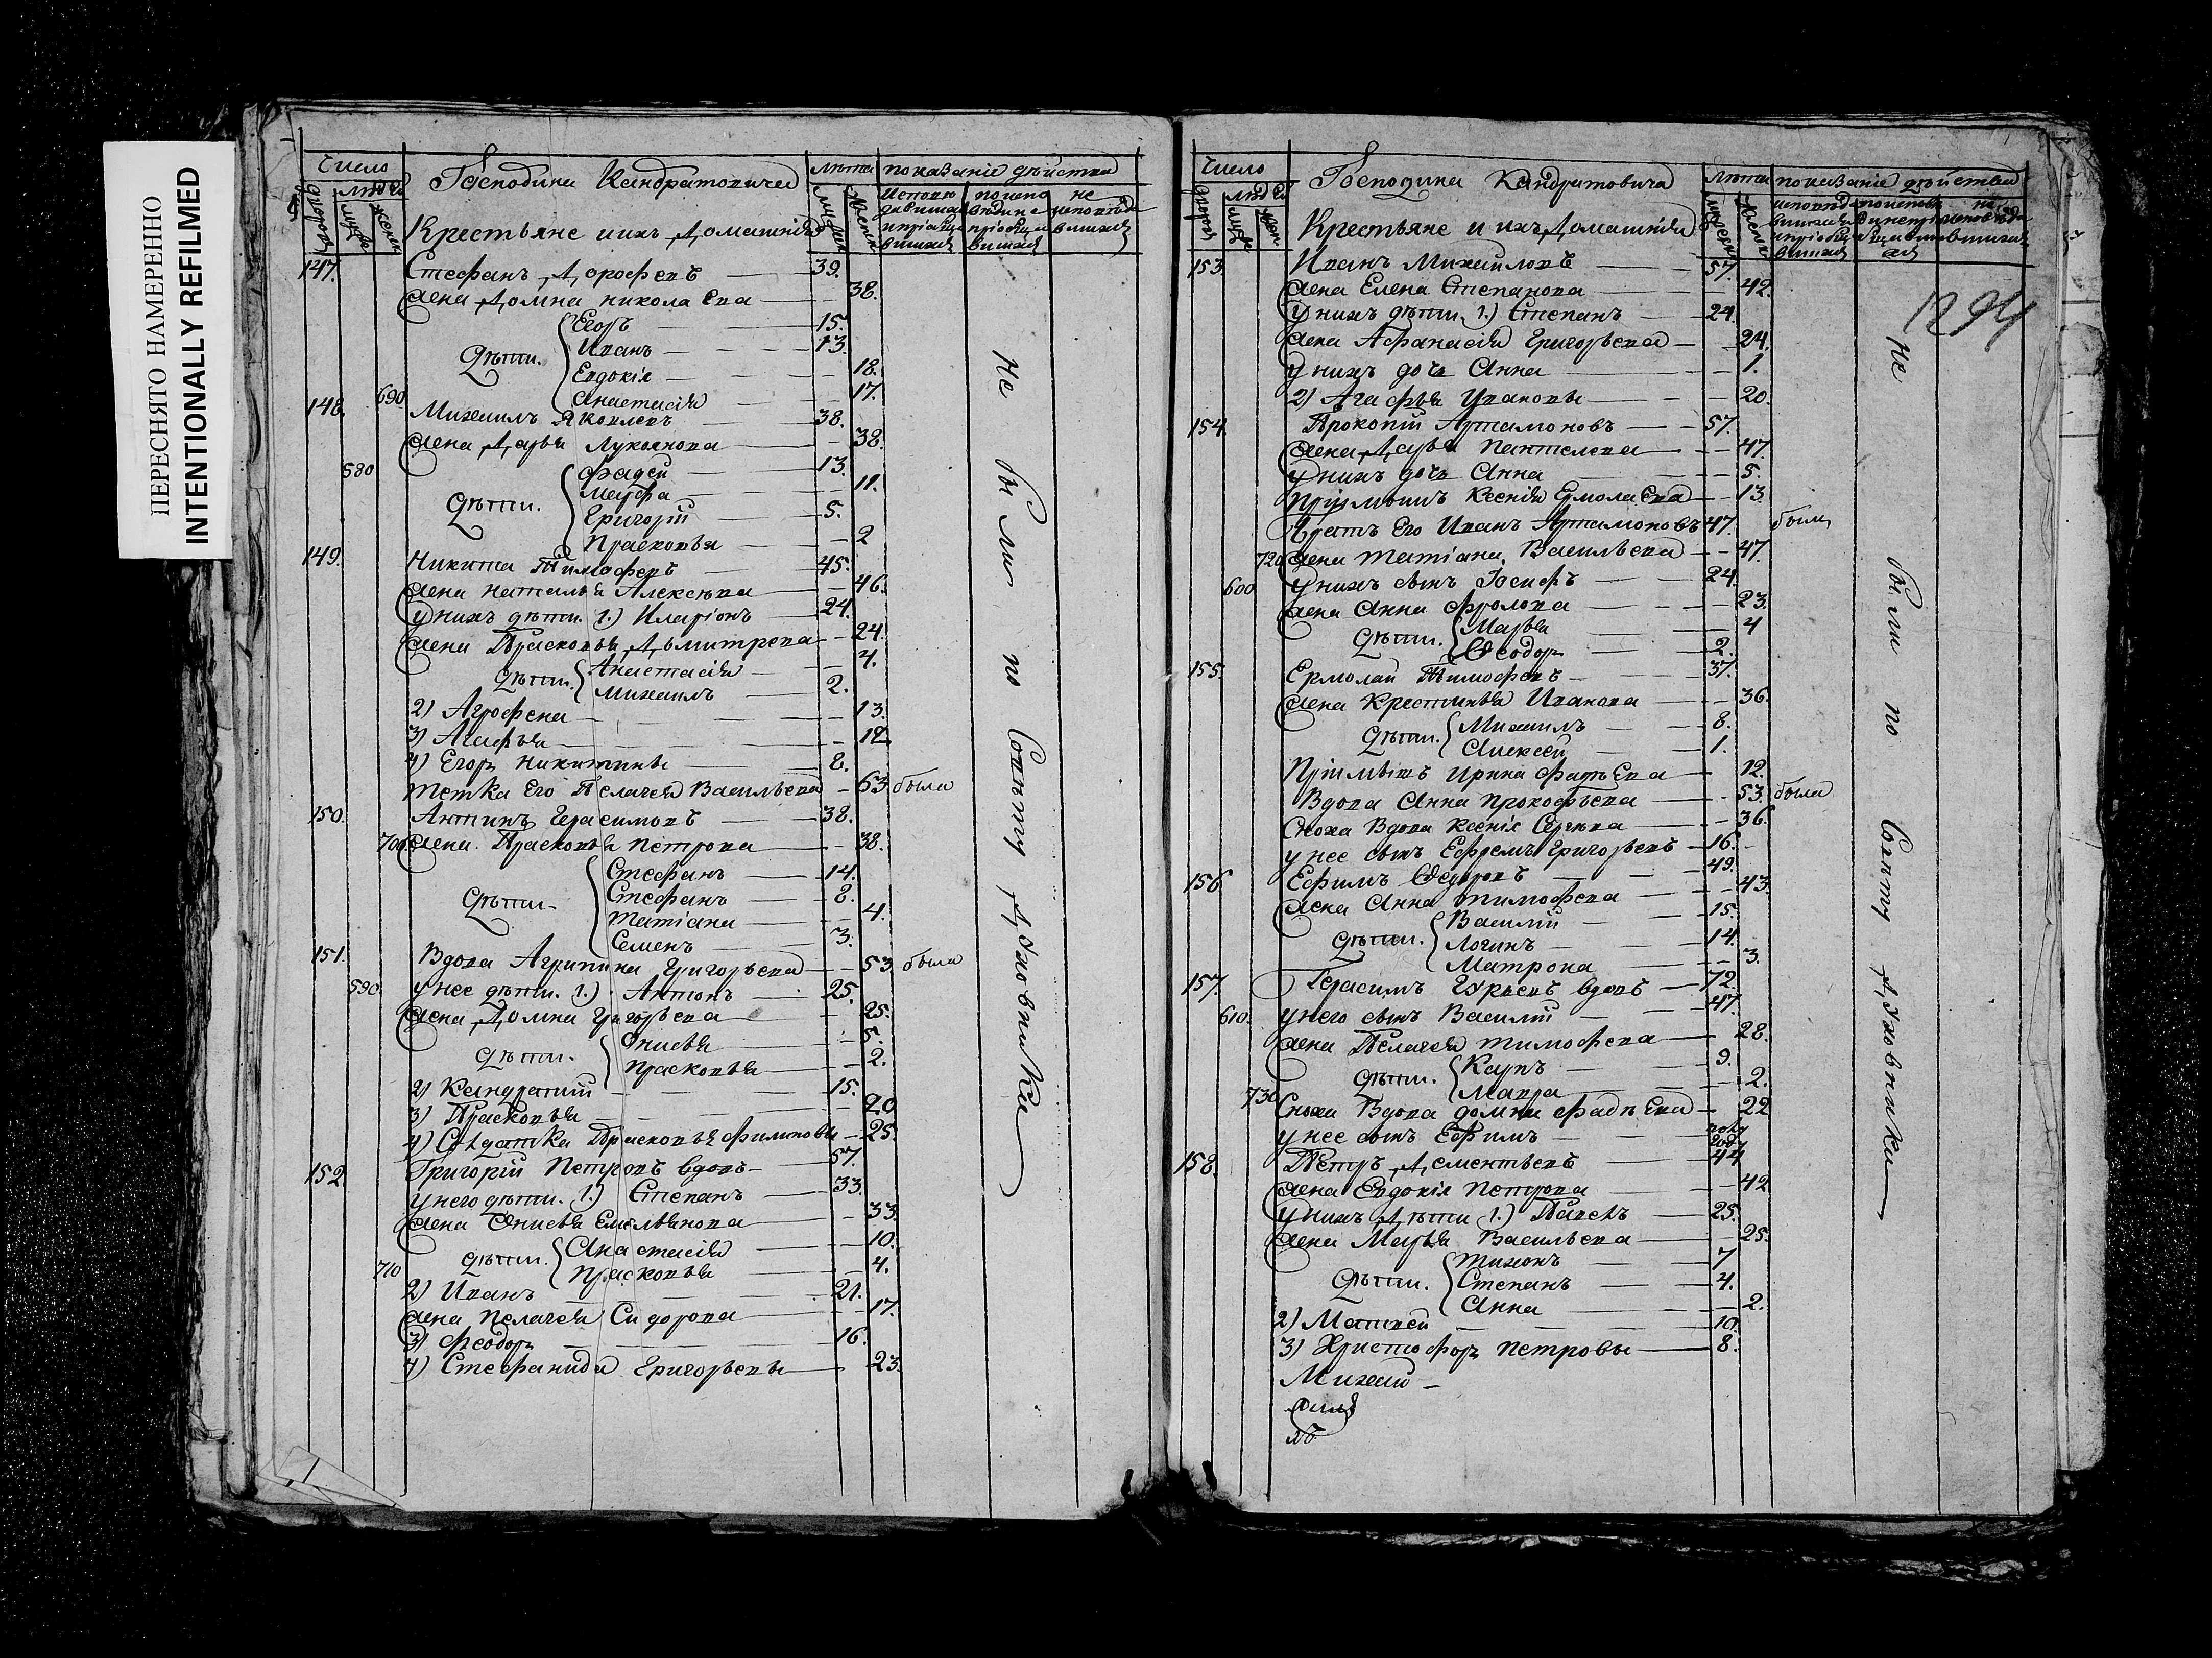 ПЕРЕСНЯТО НАМЕРЕННО
INTENTIONALLY REFILMED
Число Господина Кандратовича лѣта показаніе дѣйства
дворовъ людей мужеска женска
Крестьяне и ихъ домашнія
147. Стефанъ Дорофеевъ — 39.
жена Домна Николаева — 38.
дѣти. Егоръ — 15.
Иванъ — 13.
Евдокія — 18.
690 Анастасія — 17.
148. Михаилъ Яковлевъ — 38.
жена Дарья Лукоянова — 38.
580 Фадей — 13.
дѣти. Марфа — 11.
Григорій — 5.
Прасковья — 2
149. Никита Тимофеевъ — 45.
жена Наталья Алексѣева — 46.
у нихъ дѣти. 1.) Иларіонъ — 24.
жена Прасковья Дьмитрева — 24.
дѣти. Анастасія — 4.
Михаилъ — 2.
2) Агрофена — 13.
3) Агафья — 12.
4) Егоръ Никитины — 8.
тетка Его Пелагея Васильева — 63 была
150. Антипъ Герасимовъ — 38.
700 жена Прасковья Петрова — 38.
Стефанъ — 14.
дѣти Стефанъ — 8.
Татіана — 4.
Семенъ — 3.
151. Вдова Агрипина Григорьева — 53 была
590 у нее дѣти. 1.) Антонъ — 25.
жена Домна Григорьева — 25.
дѣти. Онисья — 5.
Прасковья — 2.
2) Кандратій — 15.
3) Прасковья — 20
4) Солдатка Прасковья Филипова — 25.
152. Григорій Петровъ вдовъ — 57.
у него дѣти. 1.) Степанъ — 33.
жена Онисья Емельянова — 33.
дѣти. Анастасія — 10.
710 Прасковья — 4.
2) Иванъ — 21.
жена Пелагея Сидорова — 17.
3) Феодоръ — 16.
4) Стефанида Григорьевы — 23.
Не были по Соньту Духовника
Число Господина Кандратовича Лѣта показаніе дѣйства
Крестьяне и ихъ Домашнія
1294
153. Иванъ Михайловъ — 57.
жена Елена Степанова — 42.
у нихъ дѣти. 1.) Степанъ — 24
жена Афанасія Григорьева — 24.
у нихъ дочь Анна — 1.
2) Агафья Ивановы — 20.
154. Прокопій Артамоновъ — 57.
жена Дарья Пантелева — 47.
у нихъ дочь Анна — 5.
Пріѣмышъ Ксенія Ермолаева — 13
Братъ Его Иванъ Артамоновъ 47. были
720 жена Татіана Васильева — 47.
600 у нихъ сынъ Іосифъ — 24.
жена Анна Фролова — 23.
дѣти. Марья — 4
Ѳеодоръ — 2.
155. Ермолай Тимофеевъ — 37.
жена Крестинья Иванова — 36.
дѣти. Михаилъ — 8.
Алексей — 1.
Пріімышъ Ирина Фадѣева — 12.
Вдова Анна Прокофьева — 53. была
Сноха Вдова Ксенія Сергѣева — 36.
у нее сынъ Ефремъ Григорьевъ — 16.
156. Ефимъ Ѳедоровъ — 49.
жена Анна Тимофеева — 43.
Василій — 15.
дѣти. Логинъ — 14.
Матрона — 3.
157. Герасимъ Гурьевъ вдовъ — 72.
610. у него сынъ Василій — 47.
жена Пелагея Тимофеева — 28.
дѣти. Карпъ — 9.
Мавра — 2.
730 Сноха Вдова Домна Фадѣева — 22
у нее сынъ Ефимъ — полу году
158. Петръ Дементьевъ — 44
жена Евдокія Петрова — 42
у нихъ дѣти 1.) Павелъ — 25.
жена Марья Васильева — 25.
Тихонъ — 7
дѣти. Степанъ — 4.
Анна — 2.
2) Матвей — 10
3) Христофоръ Петровы — 8.
Михаи —
Не были по Соньту Духовника